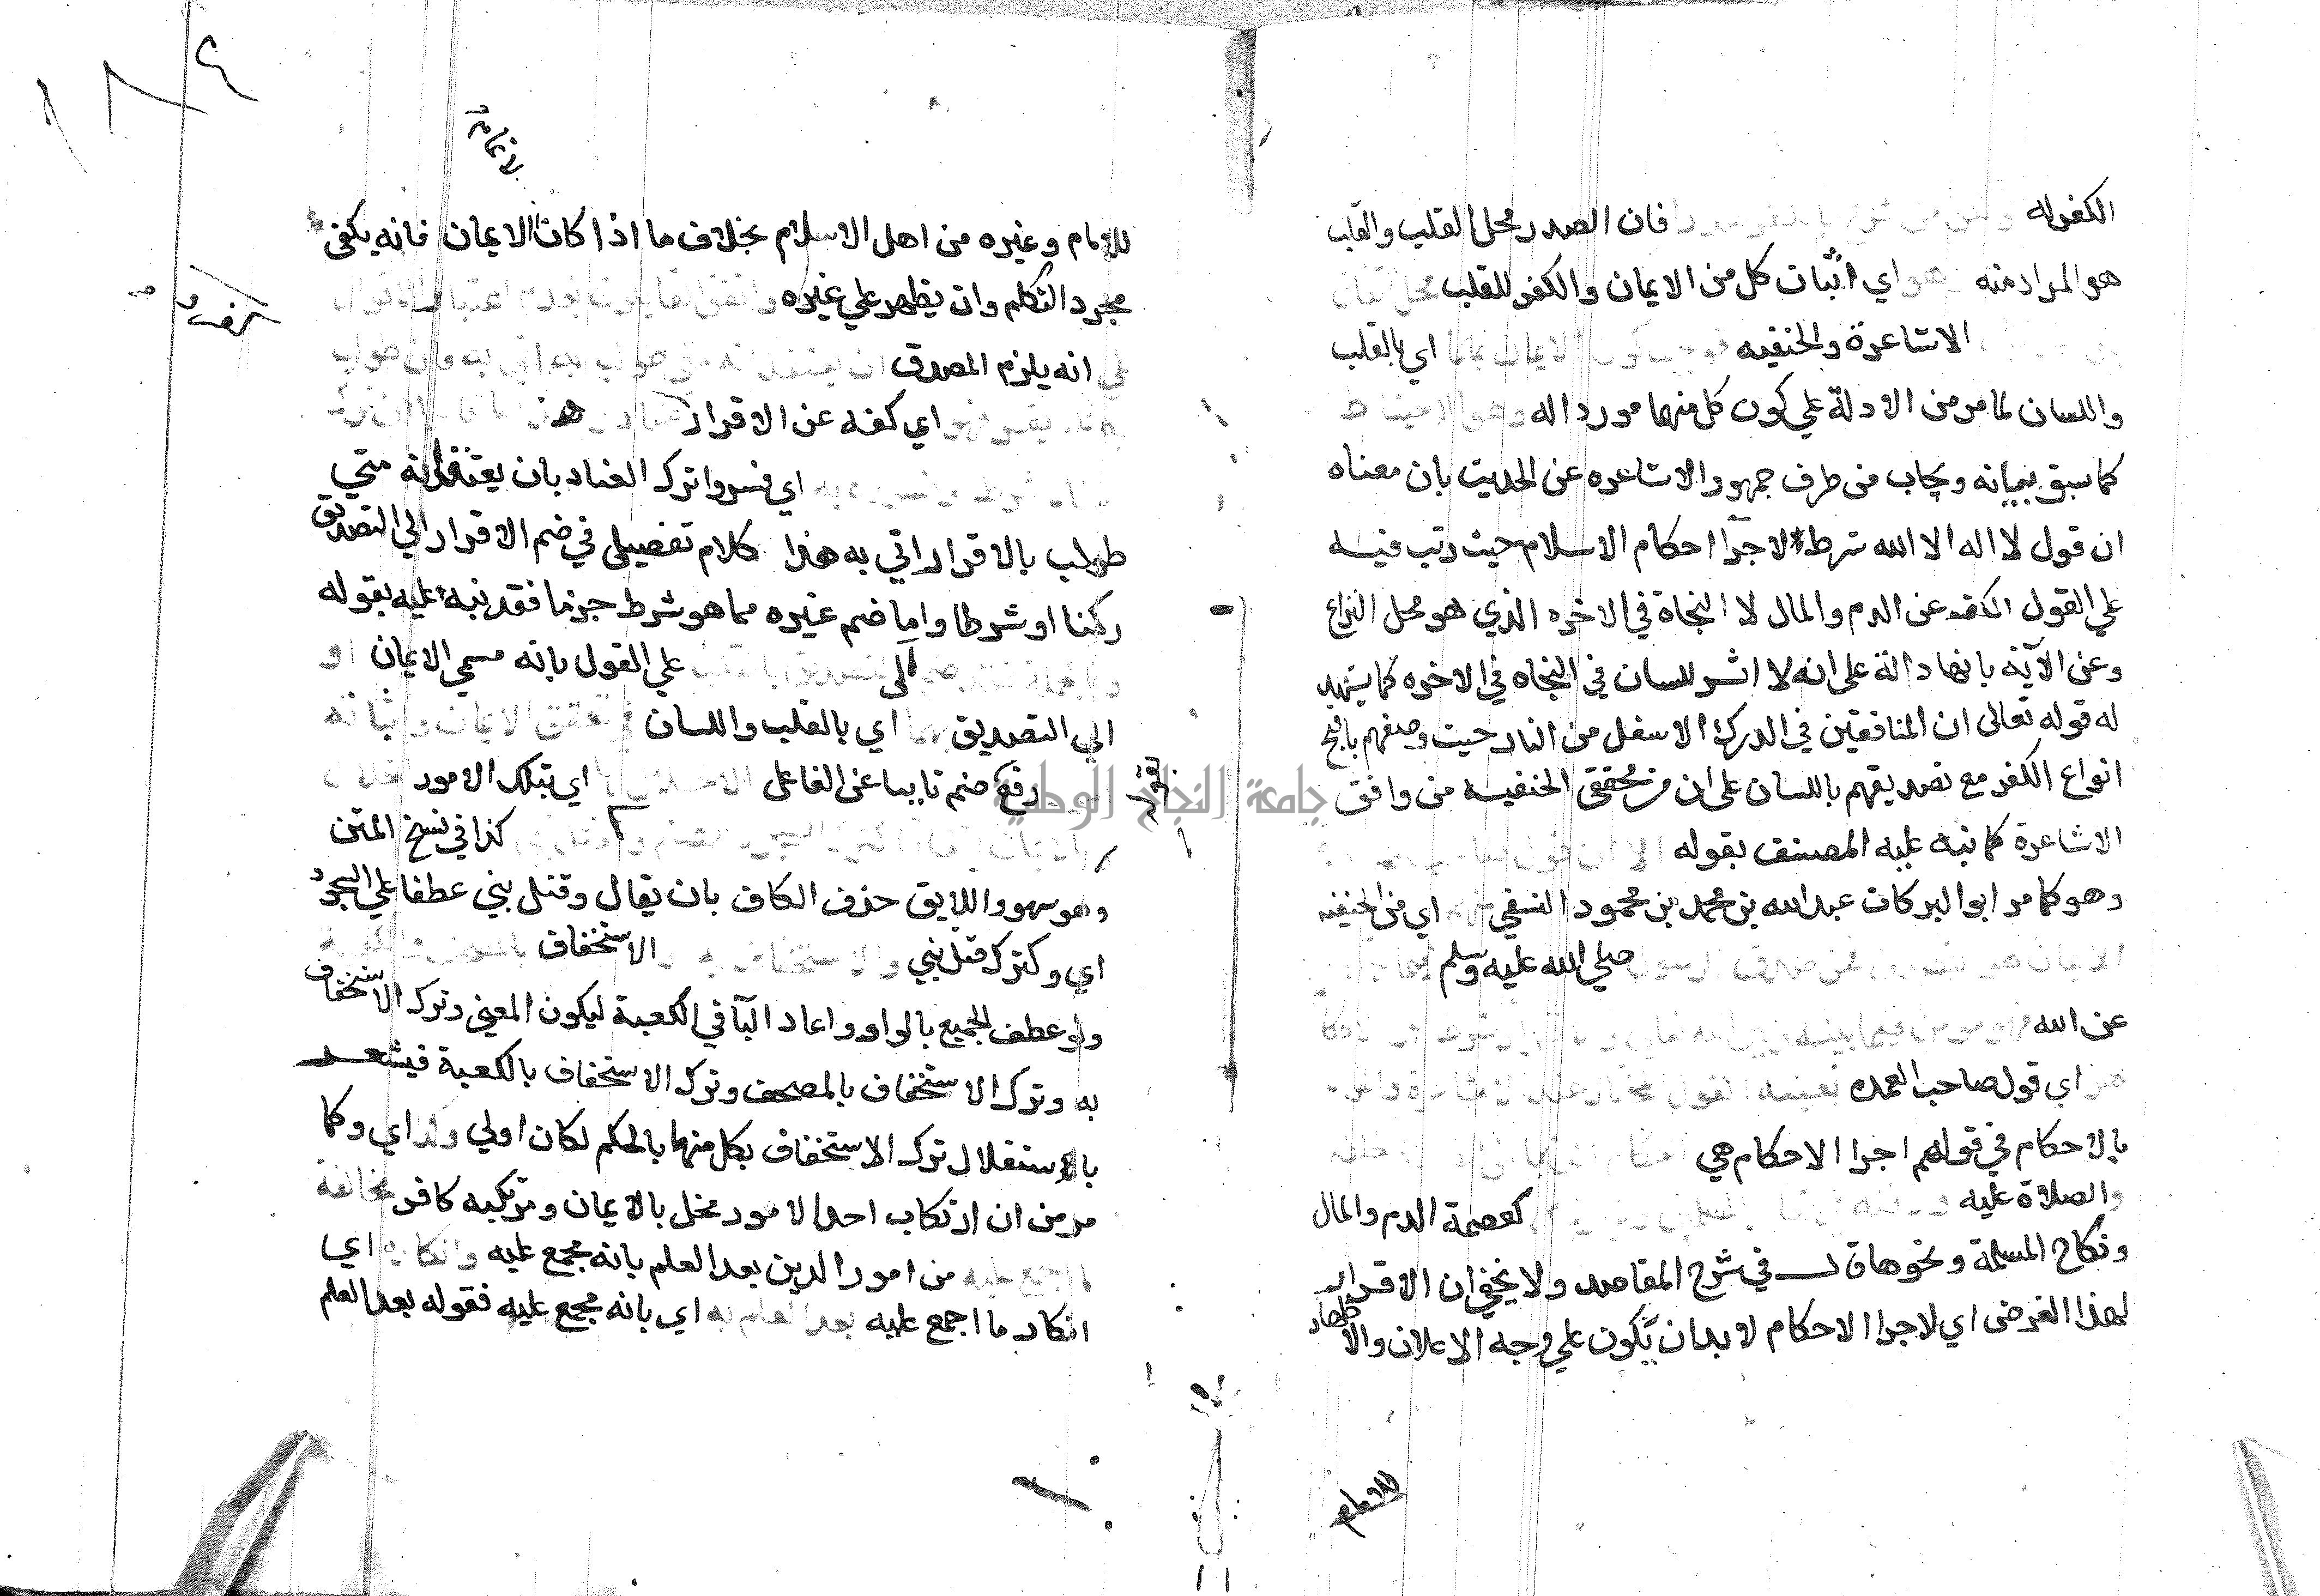 الكفر له فان الصدر محل القلب والقلب
هو المراد منه اي اثبات كل من الايمان والكفر للقلب
الاشاعرة والحنفيه اي بالقلب
واللسان لما مر من الادلة علي كون كل منهما موردا له
كما سبق بيانه ويجاب من طرف جمهور الاشاعره عن الحديث بان معناه
ان قول لا اله الا الله شرط لاجرا احكام الاسلام حيث رتب فيه
علي القول الكف عن الدم والمال لا النجاة في الاخره الذي هو محل النزاع
وعن الآية بانها دالة على انه لا اثر للسان في النجاه في الاخره كما يشهد
له قوله تعالى ان المنافقين في الدرك الاسفل من النار حيث وصفهم باقبح
انواع الكفر مع تصديقهم باللسان على ان من محققي الحنفيه من وافق
الاشاعرة كما نبه عليه المصنف بقوله
وهو كما مر ابو البركات عبد الله بن محمد بن محمود النسفي اي من الحنفيه
صلي الله عليه وسلم
عن الله
اي قول صاحب العمده
بالاحكام في قولهم اجرا الاحكام هي
والصلاة عليه كعصمة الدم والمال
ونكاح المسلمة ونحوها قال في شرح المقاصد ولا يخفي ان الاقرار
لهذا الغرض اي لاجرا الاحكام لا بد ان يكون علي وجه الاعلان والاظهار
للامام
١٨٤
للامام وغيره من اهل الاسلام بخلاف ما اذا كان الايمان فانه يكفي
مجرد التكلم وان يظهر علي غيره
انه يلزم المصدق
اي كفه عن الاقرار
اي فسروا ترك العناد بان يعتقد انه متي
طولب بالاقرار اتي به هذا كلام تفصيلي في ضم الاقرار الي التصديق
ركنا او شرطا واما ضم غيره مما هو شرط جزما فقد نبه عليه بقوله
علي القول بانه مسمي الايمان
الي التصديق اي بالقلب واللسان
رفع ضم نايبا عن الفاعل اي بتلك الامور
كذا في نسخ المتن
وهو سهو واللايق حذف الكاف بان يقال وقتل نبي عطفا علي السجود
اي وكترك قتل نبي الاستخفاف
ولو عطف الجميع بالواو واعاد البآ في الكعبة ليكون المعني وترك الاستخفاف
به وترك الاستخفاف بالمصحف وترك الاستخفاف بالكعبة فيشعر
بالاستقلال ترك الاستخفاف بكل منهما بالحكم لكان اولي اي وكما
مر من ان ارتكاب احد الامور مخل بالايمان ومرتكبه كافر مخالفة
من امور الدين بعد العلم بانه مجمع عليه اي
انكار ما اجمع عليه اي بانه مجمع عليه فقوله بعد العلم
بقوله
جامعة النجاح الوطنية